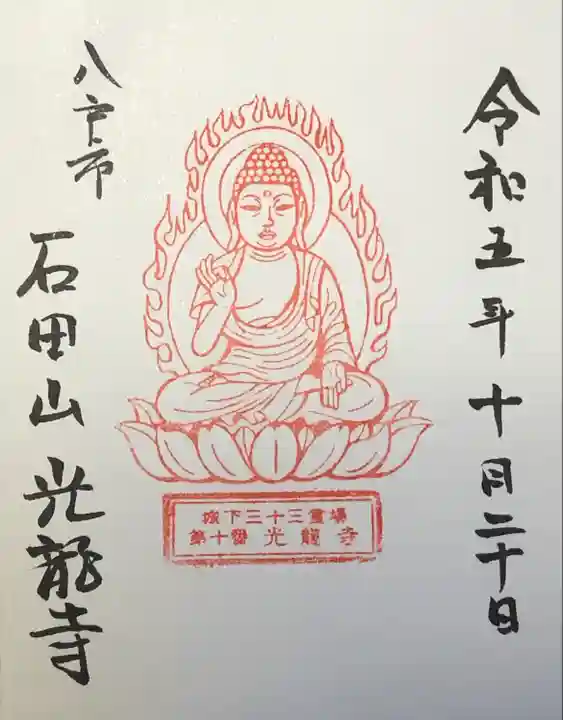 令和五年十月二十日
城下三十三霊場
第十番 光龍寺
八戸市
石田山 光龍寺